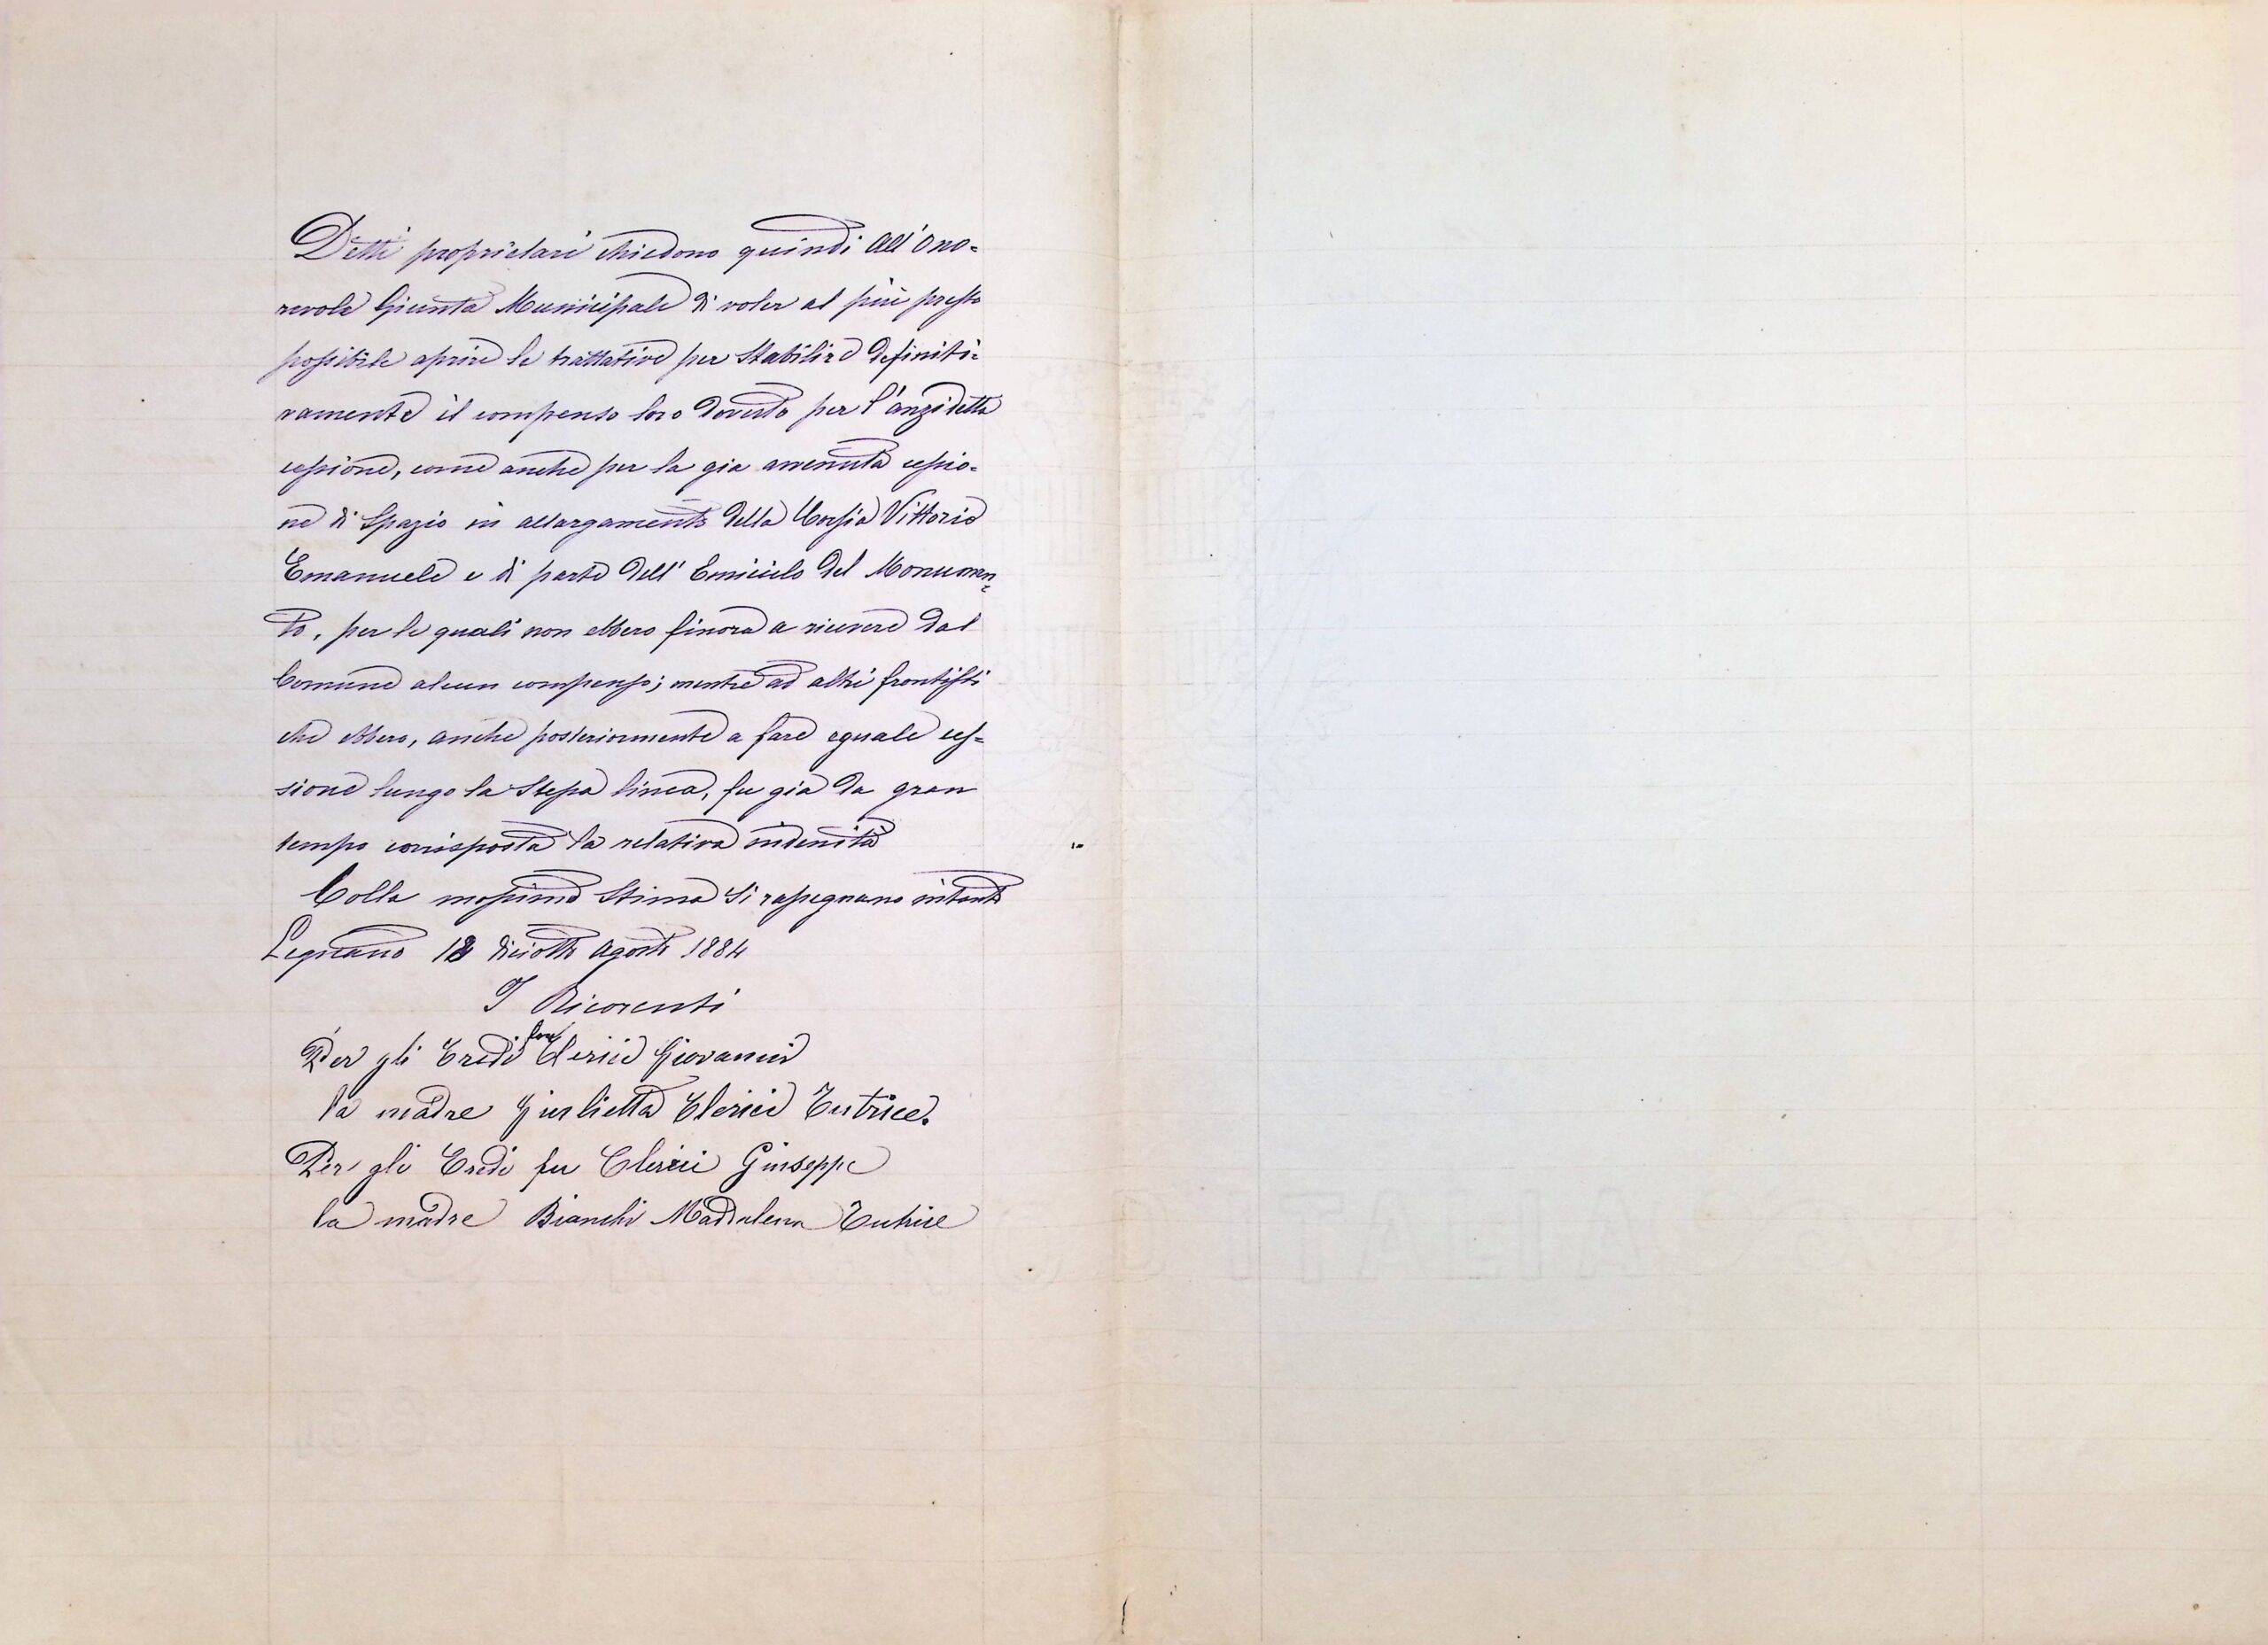 Detti proprietari chiedono quindi all'Ono=
revole Giunta Municipale di voler al più presto
possibile aprire le trattative per stabilire definiti=
vamente il compenso loro dovuto per l'anzidetta
cessione, come anche per la gia avvenuta cessio=
ne di spazio in allargamento della Corsia Vittorio
Emanuele e di parte dell'Emiciclo del Monumen=
to, per le quali non ebbero finora a ricevere dal
Comune alcun compenso; mentre ad altri frontisti
che ebbero, anche posteriormente a fare eguale ces=
sione lungo la stessa linea, fu gia da gran
tempo corrisposta la relativa indenità
Colla massima stima si rassegnano intanto
Legnano 18 diciotto Agosto 1884
I Ricorenti
Per gli Eredi fu Clerici Giovanni
la madre Giulietta Clerici Tutrice.
Per gli Eredi fu Clerici Giuseppe
la madre Bianchi Maddalena Tutrice